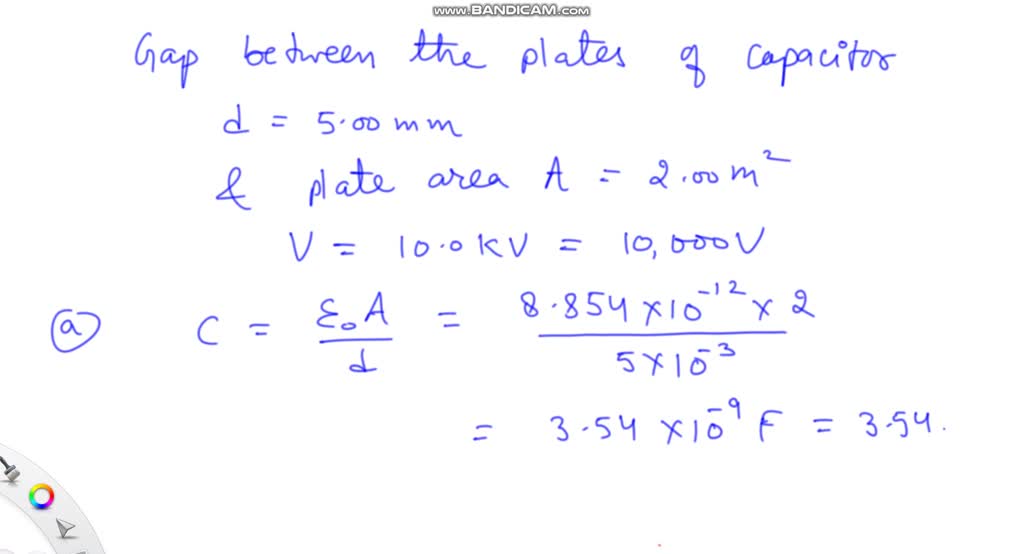 www.BANDICAM.com
Gap between the plates of capacitor
d = 5.00 mm
& plate area A = 2.00 m²
V = 10.0 KV = 10,000V
(a) C = ε₀A / d = 8.854 × 10⁻¹² × 2 / 5 × 10⁻³
= 3.54 × 10⁻⁹ F = 3.54.